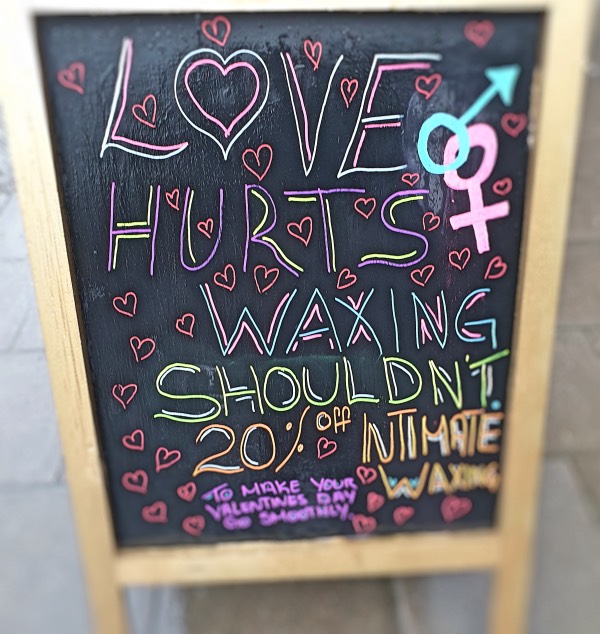 LOVE
HURTS
WAXING
SHOULDN'T.
20% off INTIMATE
WAXING
TO MAKE YOUR
VALENTINES DAY
GO SMOOTHLY.